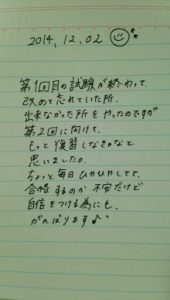 2014.12.02
第1回目の試験が終わって、
改めて忘れていた所、
出来なかった所をやったのですが
第2回に向けて、
もっと復習しなきゃなと
思いました。
ちょっと毎日ひやひやしてて、
合格するのか不安だけど
自信をつける為にも、
がんばります♪